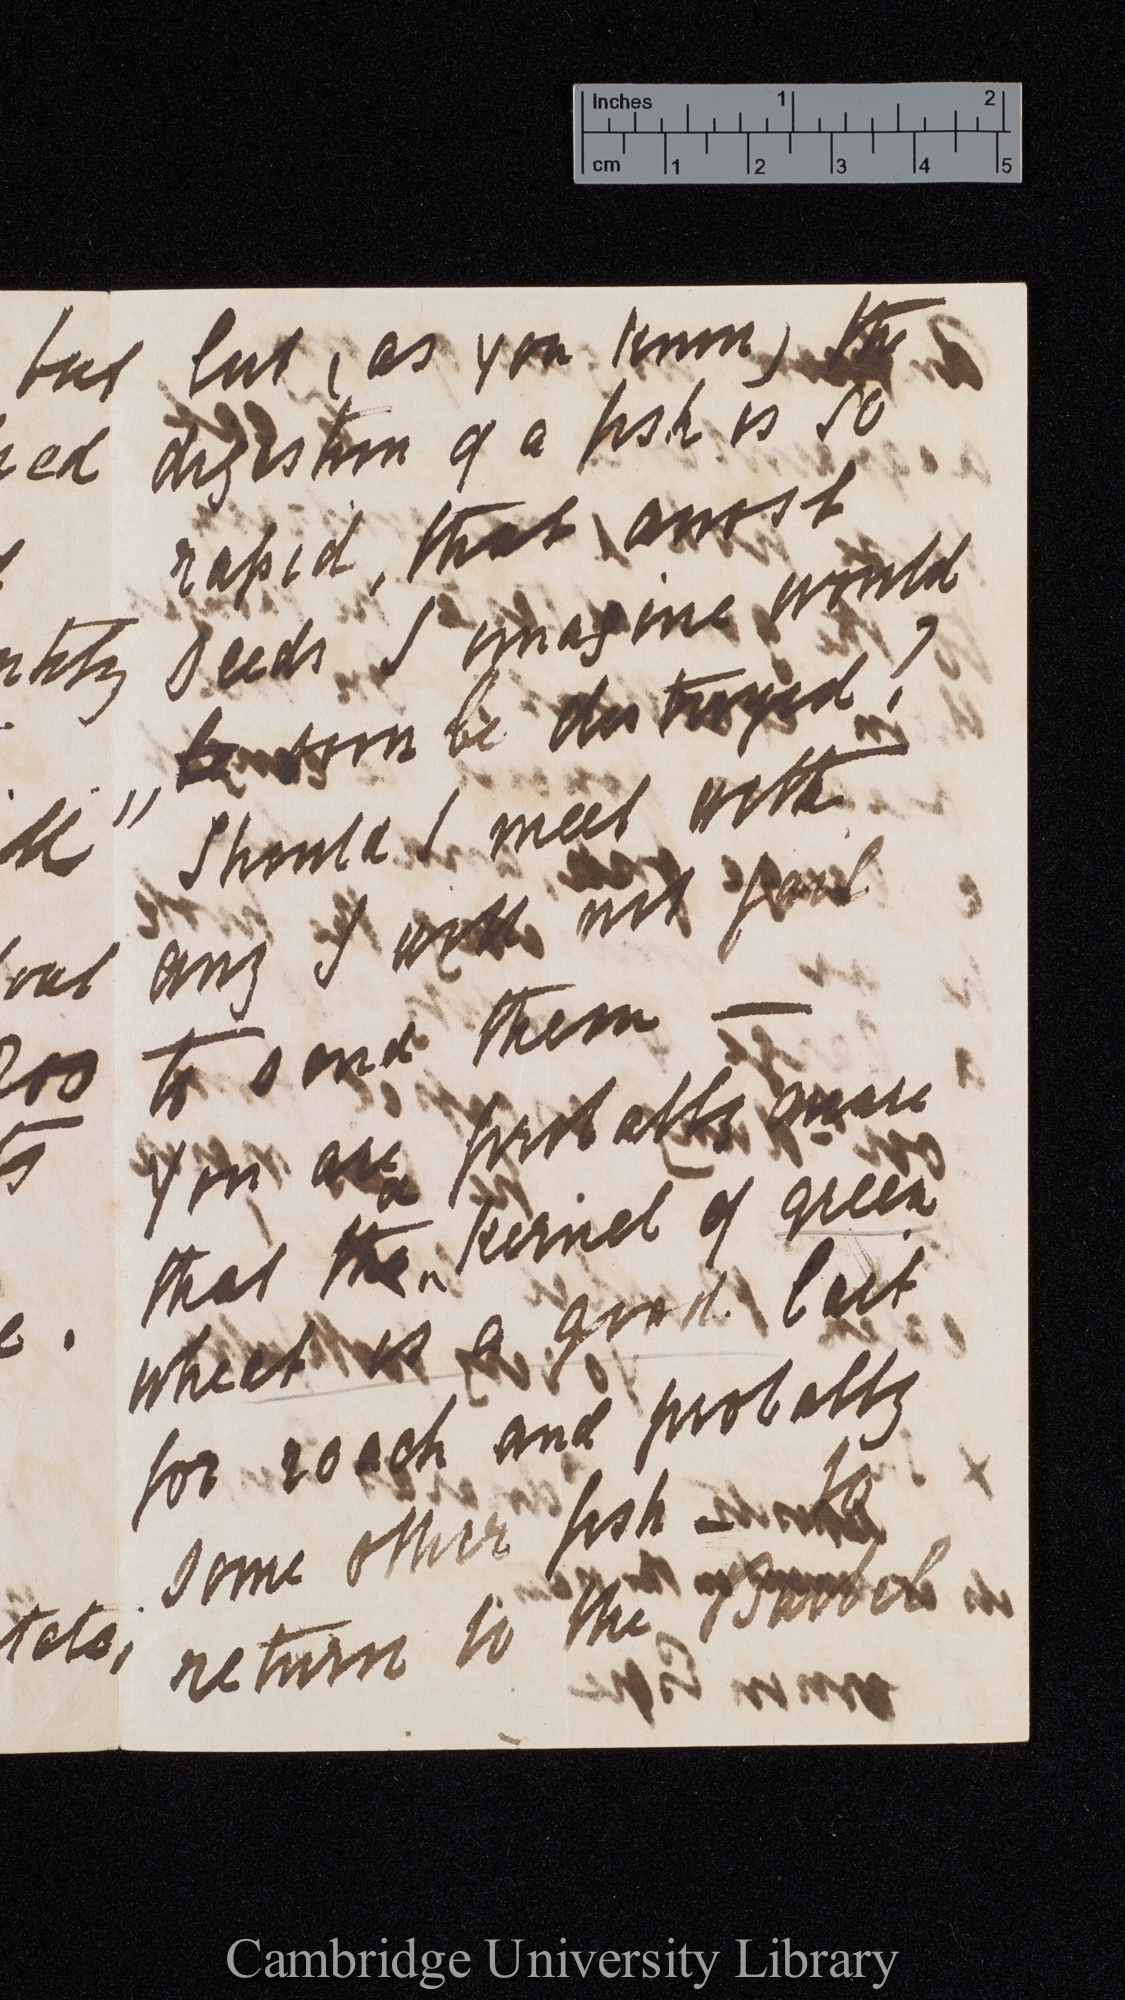 Inches 1 2
cm 1 2 3 4 5
but
ed
ntity
"
out
200
e.
tato;
but, (as you know) the
digestion of a fish is so
rapid, that most
seeds I imagine would
soon be destroyed?
Should I meet with
any I will not fail
to send them —
You are probably aware
that the a kernel of green
wheat is a good bait
for roach and probably
some other fish — To
return to the Barbel
Cambridge University Library